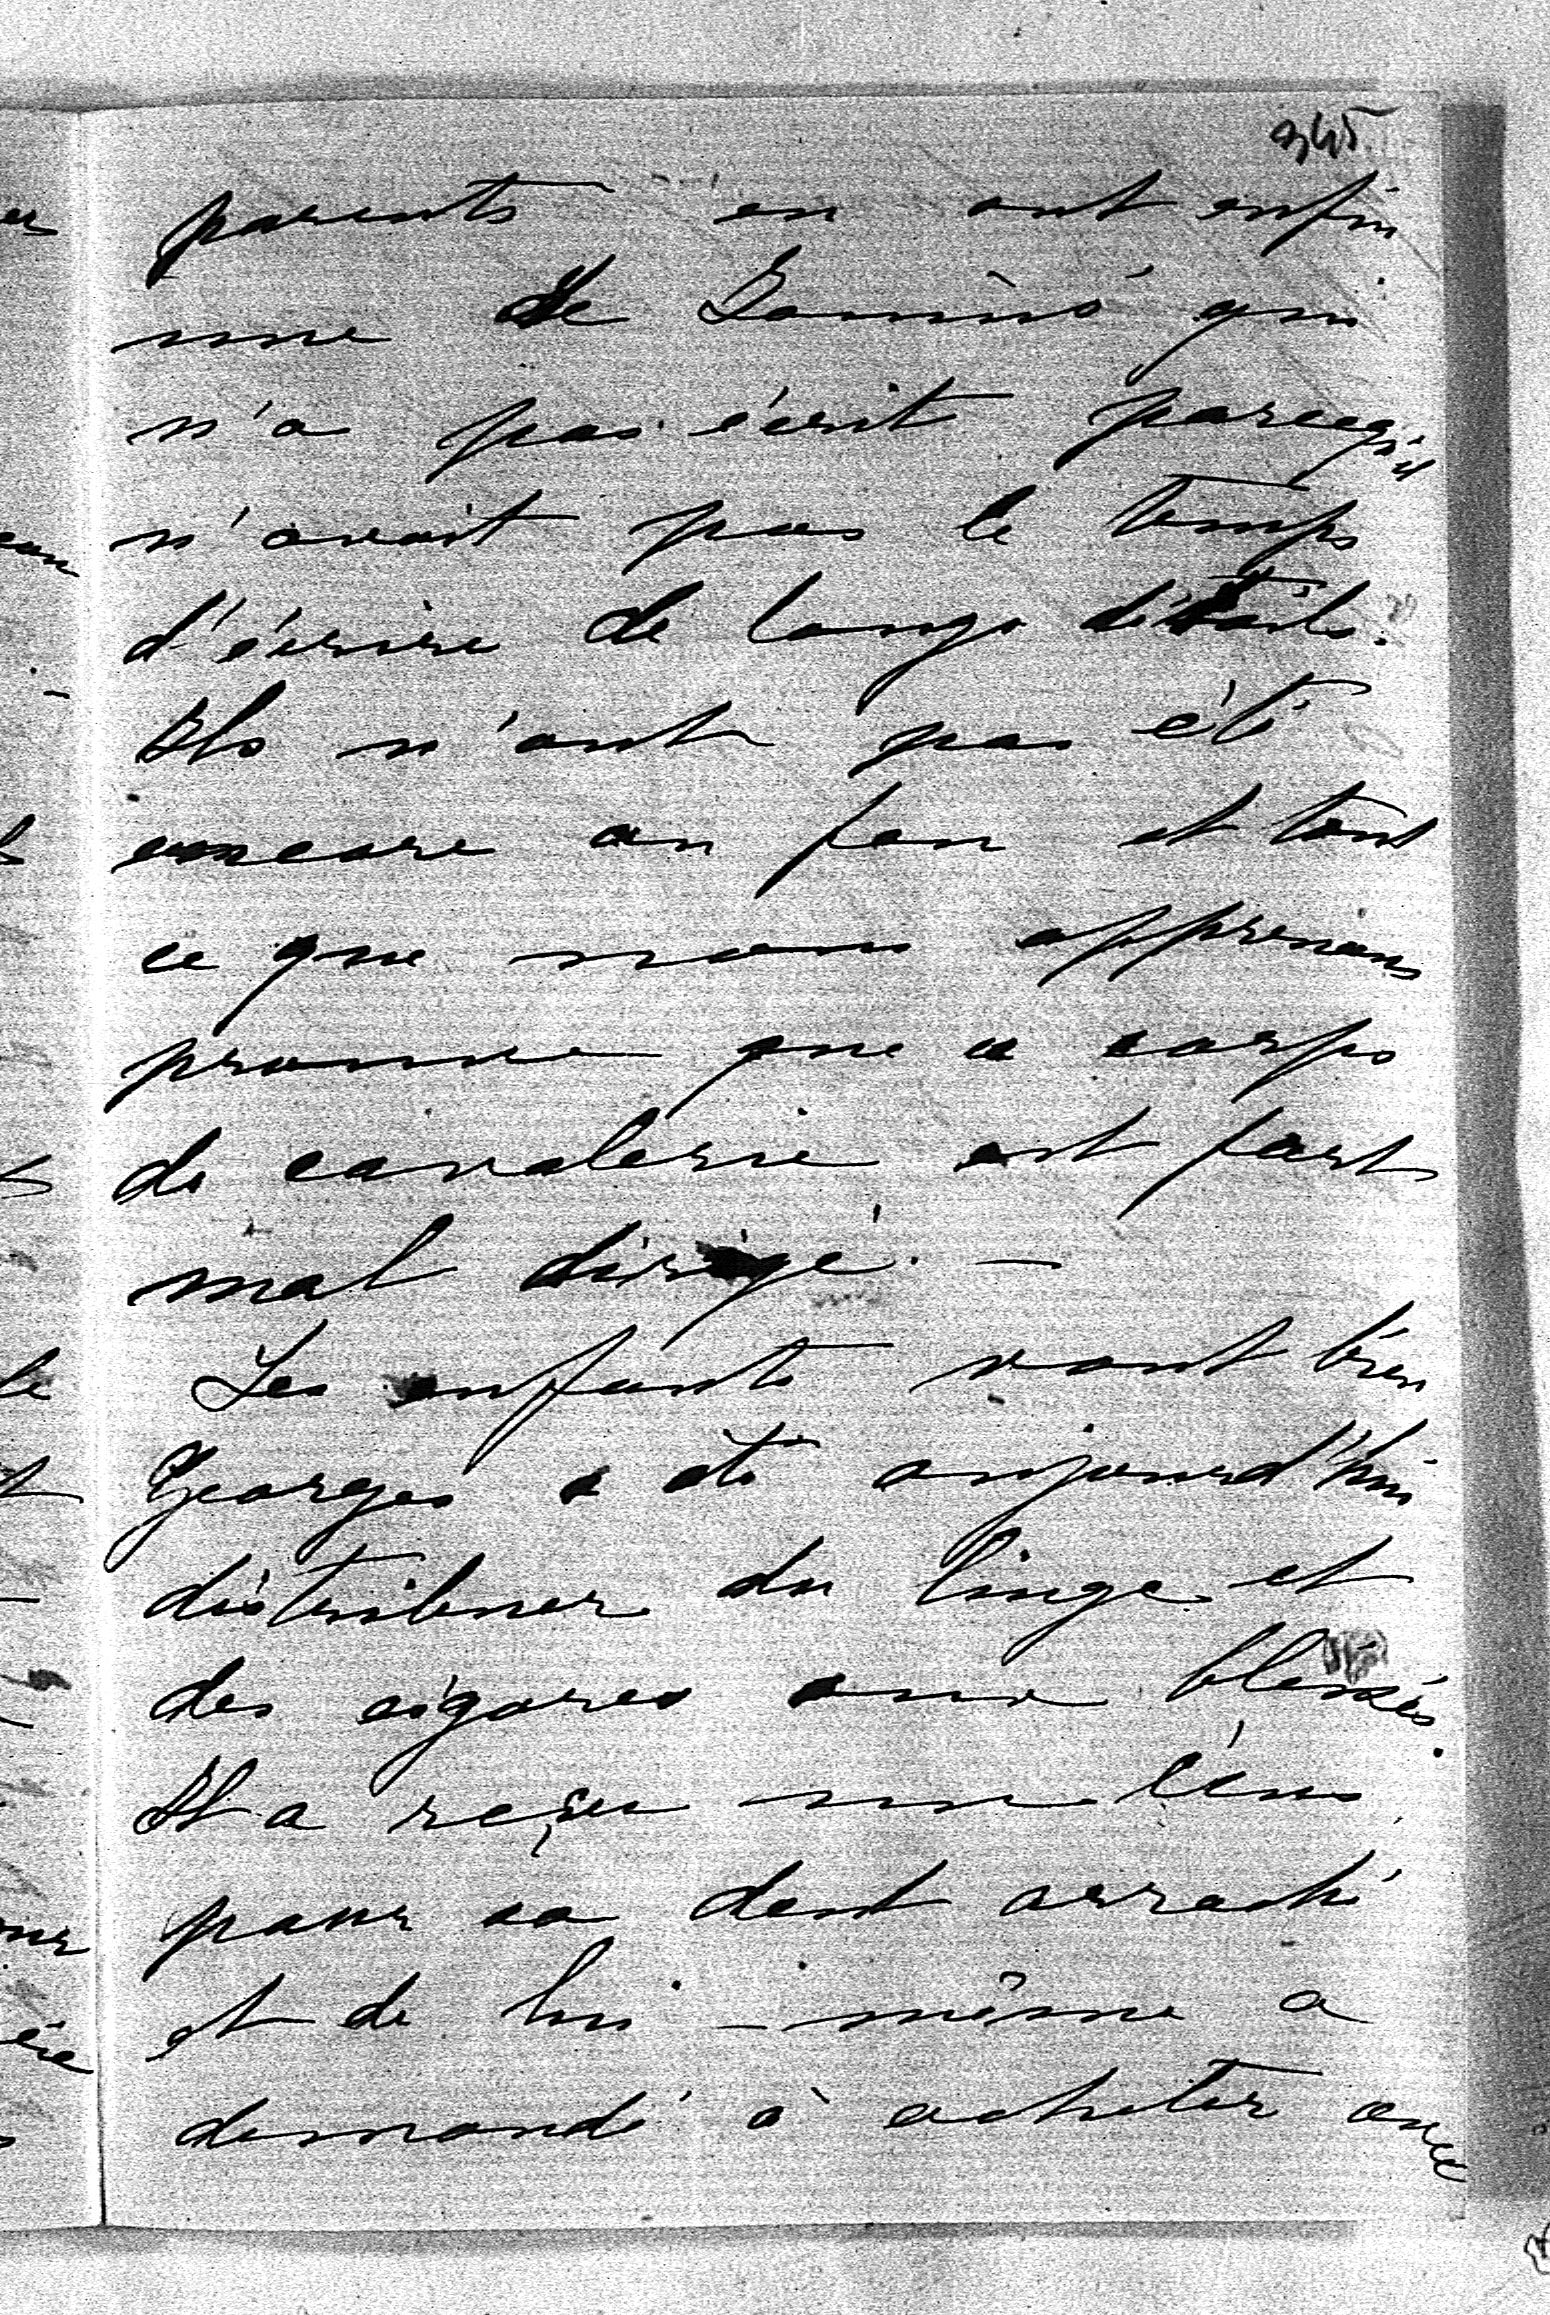 345
parents en ont enfin
une de qui
n'a pas écrit parcequ'il
n'avait pas le temps
d'écrire de longs détails.
Ils n'ont pas été
encore au feu et tout
ce que nous apprenons
prouve que ce corps
de cavalerie est fort
mal dirigé. —
Les enfants vont bien
Georges a été aujourd'hui
distribuer du linge et
des cigares aux blessés.
Il a reçu un écu
pour sa dent arraché
et de lui-même a
demandé à acheter avec